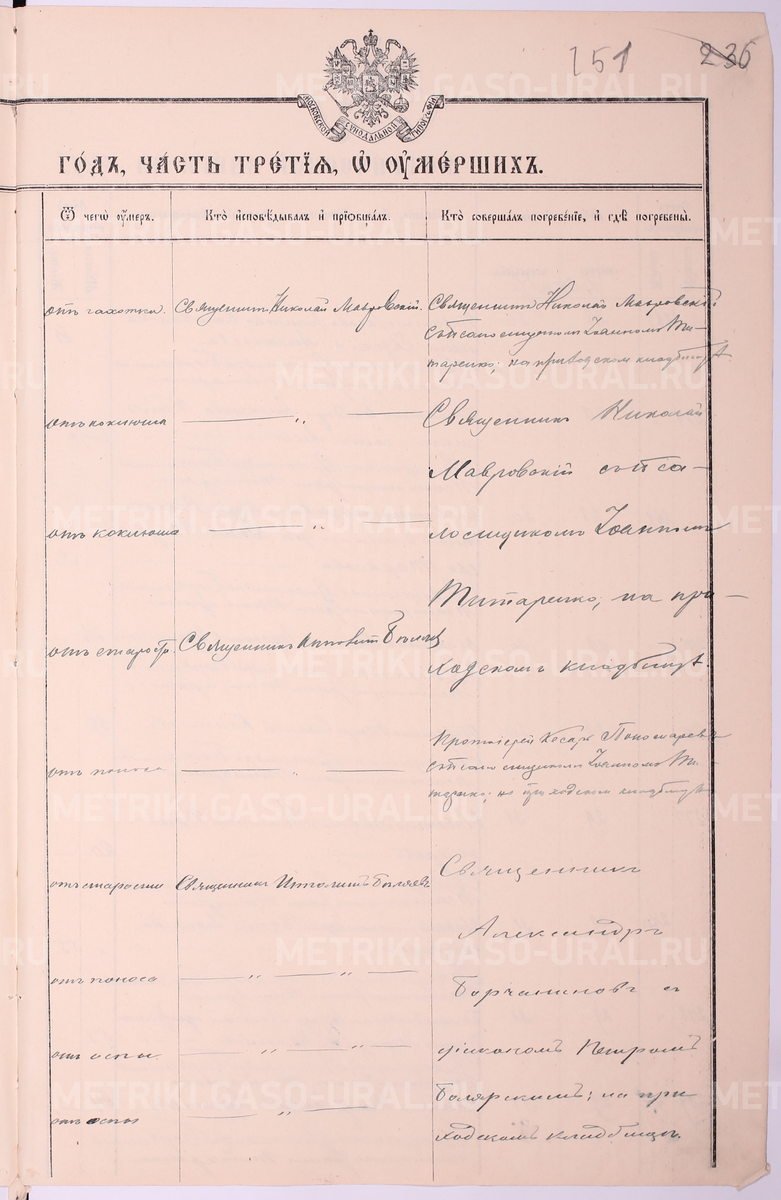 151 236
МОСКОВСКОЙ СѴНОДАЛЬНОЙ ТИПОГРАФІИ
ГОДЪ, ЧАСТЬ ТРЕТІЯ, Ѡ ОУМЕРШИХЪ.
Ѿ чегѡ оумеръ.
Кто исповѣдывалъ и пріобщалъ.
Кто совершалъ погребеніе, и гдѣ погребены.
отъ чахотки.
Священникъ Николай Мавровскій.
Священникъ Николай Мавровскій
съ псаломщикомъ Іоанномъ Ти-
таренко; на приходскомъ кладбищѣ
отъ коклюша
— „ —
Священникъ Николай
Мавровскій съ пса-
отъ коклюша
— „ —
ломщикомъ Іоанномъ
Титаренко, на при-
отъ старости
Священникъ
ходскомъ кладбищѣ
Протоіерей Кесарь Пономаревъ
отъ поноса
— „ —
съ псаломщикомъ Іоанномъ Ти-
таренко; на приходскомъ кладбищѣ
отъ старости
Священникъ Ипполитъ Бѣляевъ
Священникъ
Александръ
отъ поноса
— „ — „ —
съ
отъ оспы
— „ — „ —
діакономъ Петромъ
отъ оспы
— „ —
Боярскимъ; на при
ходскомъ кладбищѣ.
METRIKI.GASO-URAL.RU